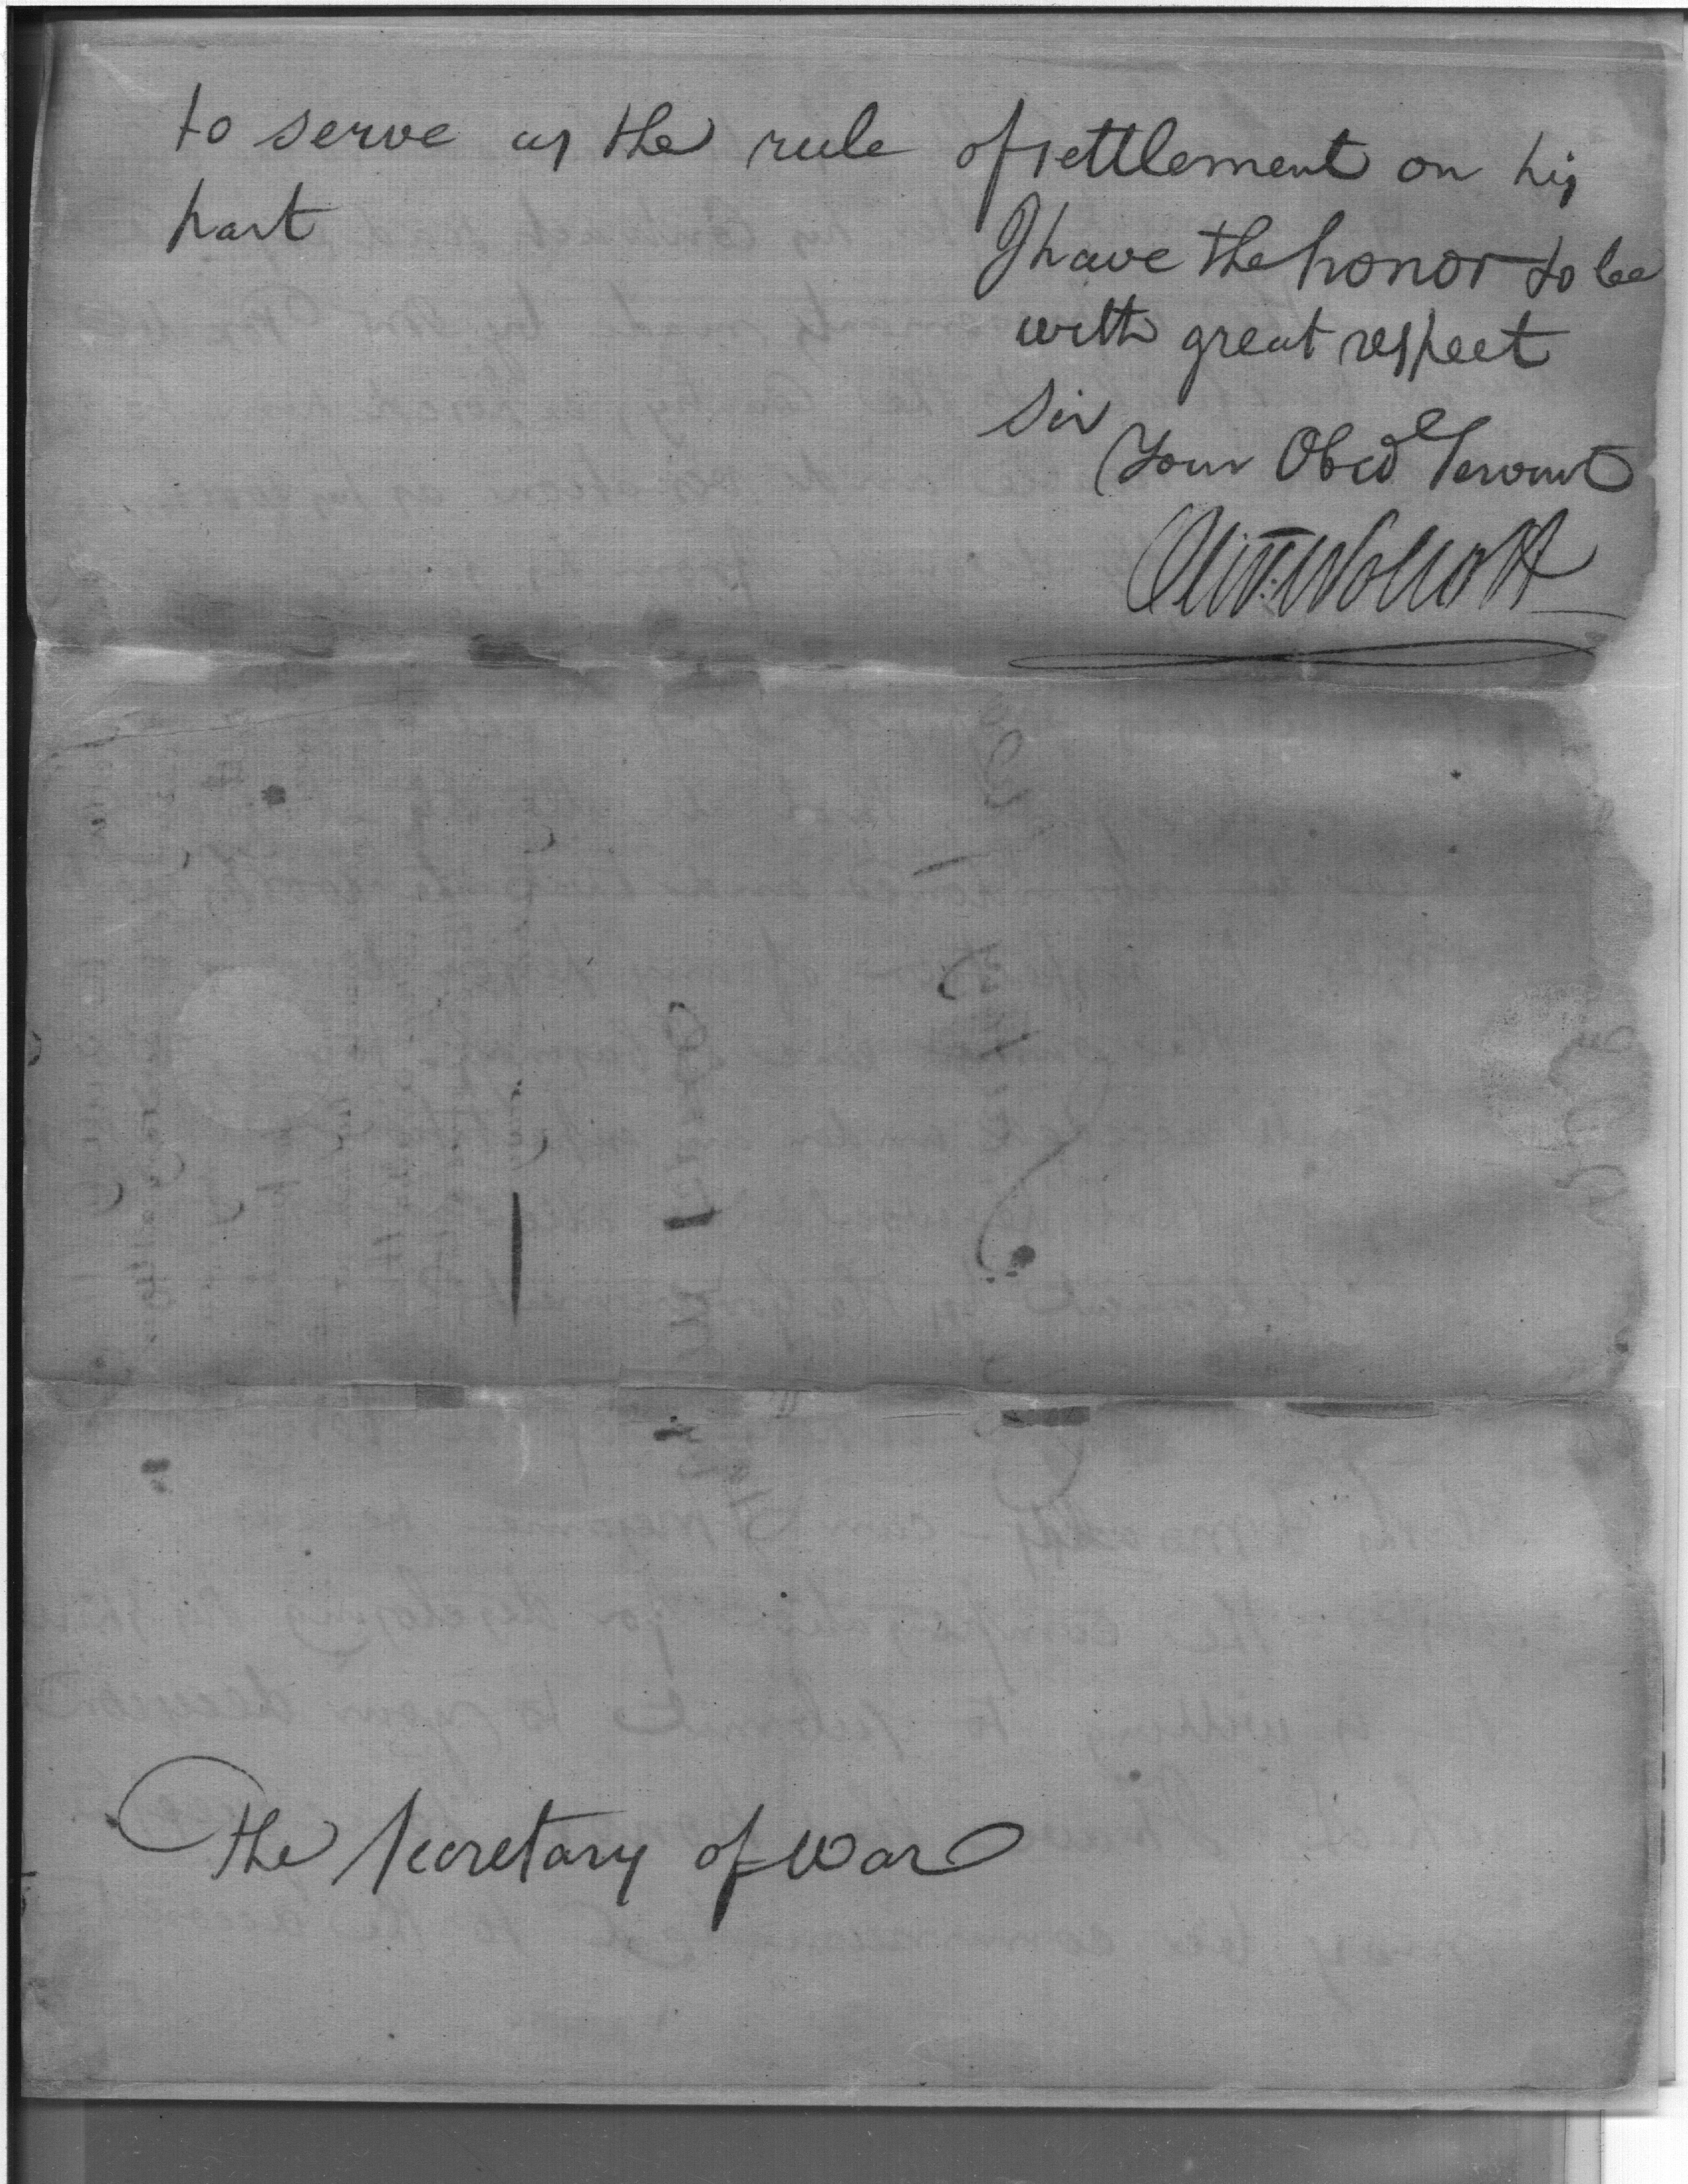 to serve as the rule of settlement on his
part
I have the honor to be
with great respect
Sir
Your Obed Servant
Oliv: Wolcott
The Secretary of War